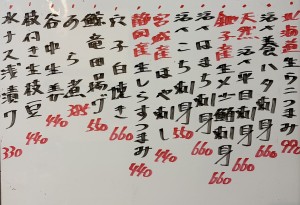 北海道産生ウニつまみ 990
活〆巻ハタ刺身 660
天然活〆平目刺身 660
銚子産生メジ鮪刺身 660
活〆はまち刺身 660
活〆こはだ刺身 550
宮城産ほや刺し 440
静岡産生しらすつまみ 440
穴子白焼き 660
鯨竜田揚げ 550
あら煮 385
谷中生姜 440
枝付き生枝豆 440
水ナス浅漬け 330